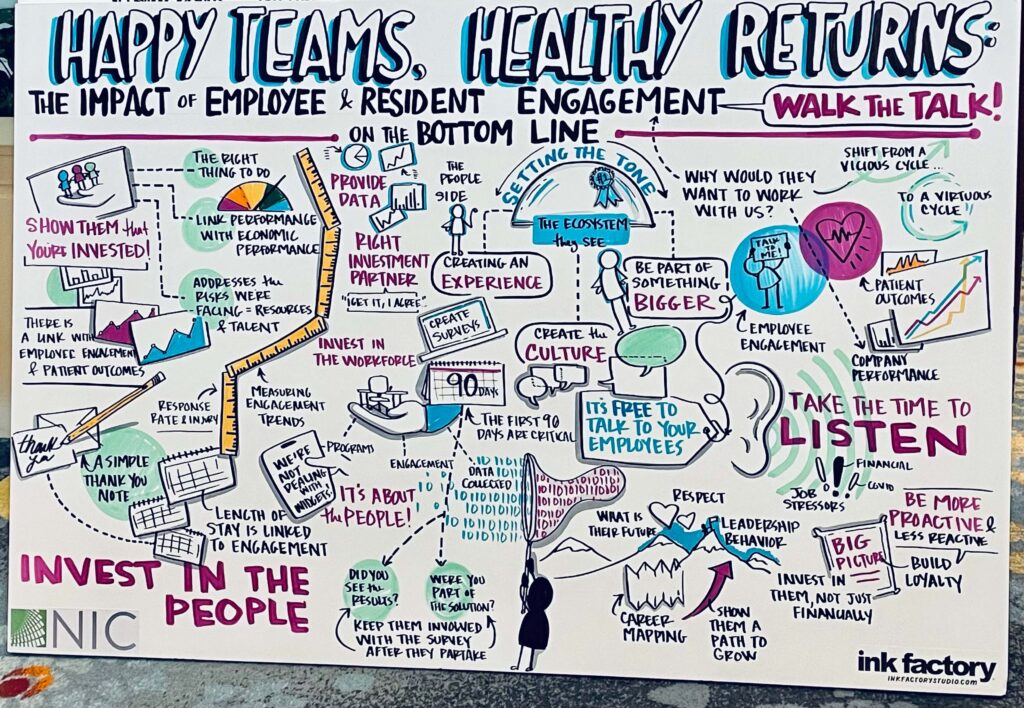 HAPPY TEAMS, HEALTHY RETURNS:
THE IMPACT OF EMPLOYEE & RESIDENT ENGAGEMENT
ON THE BOTTOM LINE
WALK THE TALK!
SHOW THEM that
YOU'RE INVESTED!
THE RIGHT
THING TO DO
LINK PERFORMANCE
WITH ECONOMIC
PERFORMANCE
ADDRESSES the
RISKS WERE
FACING = RESOURCES
& TALENT
THERE IS
A LINK WITH
EMPLOYEE ENGAGEMENT
& PATIENT OUTCOMES
thank
you
A SIMPLE
THANK YOU
NOTE
RESPONSE
RATE & INJURY
MEASURING
ENGAGEMENT
TRENDS
LENGTH OF
STAY IS LINKED
TO ENGAGEMENT
INVEST IN THE
PEOPLE
NIC
PROVIDE
DATA
RIGHT
INVESTMENT
PARTNER
"I GET IT, I AGREE"
THE
PEOPLE
SIDE
CREATING AN
EXPERIENCE
SETTING THE TONE
#1
THE ECOSYSTEM
they SEE
BE PART OF
SOMETHING
BIGGER
CREATE the
CULTURE
CREATE
SURVEYS
INVEST IN
THE WORKFORCE
90
DAYS
THE FIRST 90
DAYS ARE CRITICAL
PROGRAMS
ENGAGEMENT
WE'RE
NOT
DEALING
WITH
WIDGETS!
IT'S ABOUT
the PEOPLE!
DATA
COLLECTED
DID YOU
SEE the
RESULTS?
WERE YOU
PART OF
THE SOLUTION?
KEEP THEM INVOLVED
WITH THE SURVEY
AFTER THEY PARTAKE
IT'S FREE TO
TALK TO YOUR
EMPLOYEES
WHY WOULD THEY
WANT TO WORK
WITH US?
SHIFT FROM A
VICIOUS CYCLE...
TO A
VIRTUOUS
CYCLE!!
TALK TO
ME!
EMPLOYEE
ENGAGEMENT
PATIENT
OUTCOMES
COMPANY
PERFORMANCE
TAKE THE TIME TO
LISTEN
JOB
STRESSORS
FINANCIAL
COVID
RESPECT
WHAT IS
THEIR FUTURE
LEADERSHIP
BEHAVIOR
CAREER
MAPPING
SHOW
THEM A
PATH TO
GROW
BIG
PICTURE
INVEST IN
THEM, NOT JUST
FINANCIALLY
BE MORE
PROACTIVE &
LESS REACTIVE
BUILD
LOYALTY
ink factory
INKFACTORYSTUDIO.COM